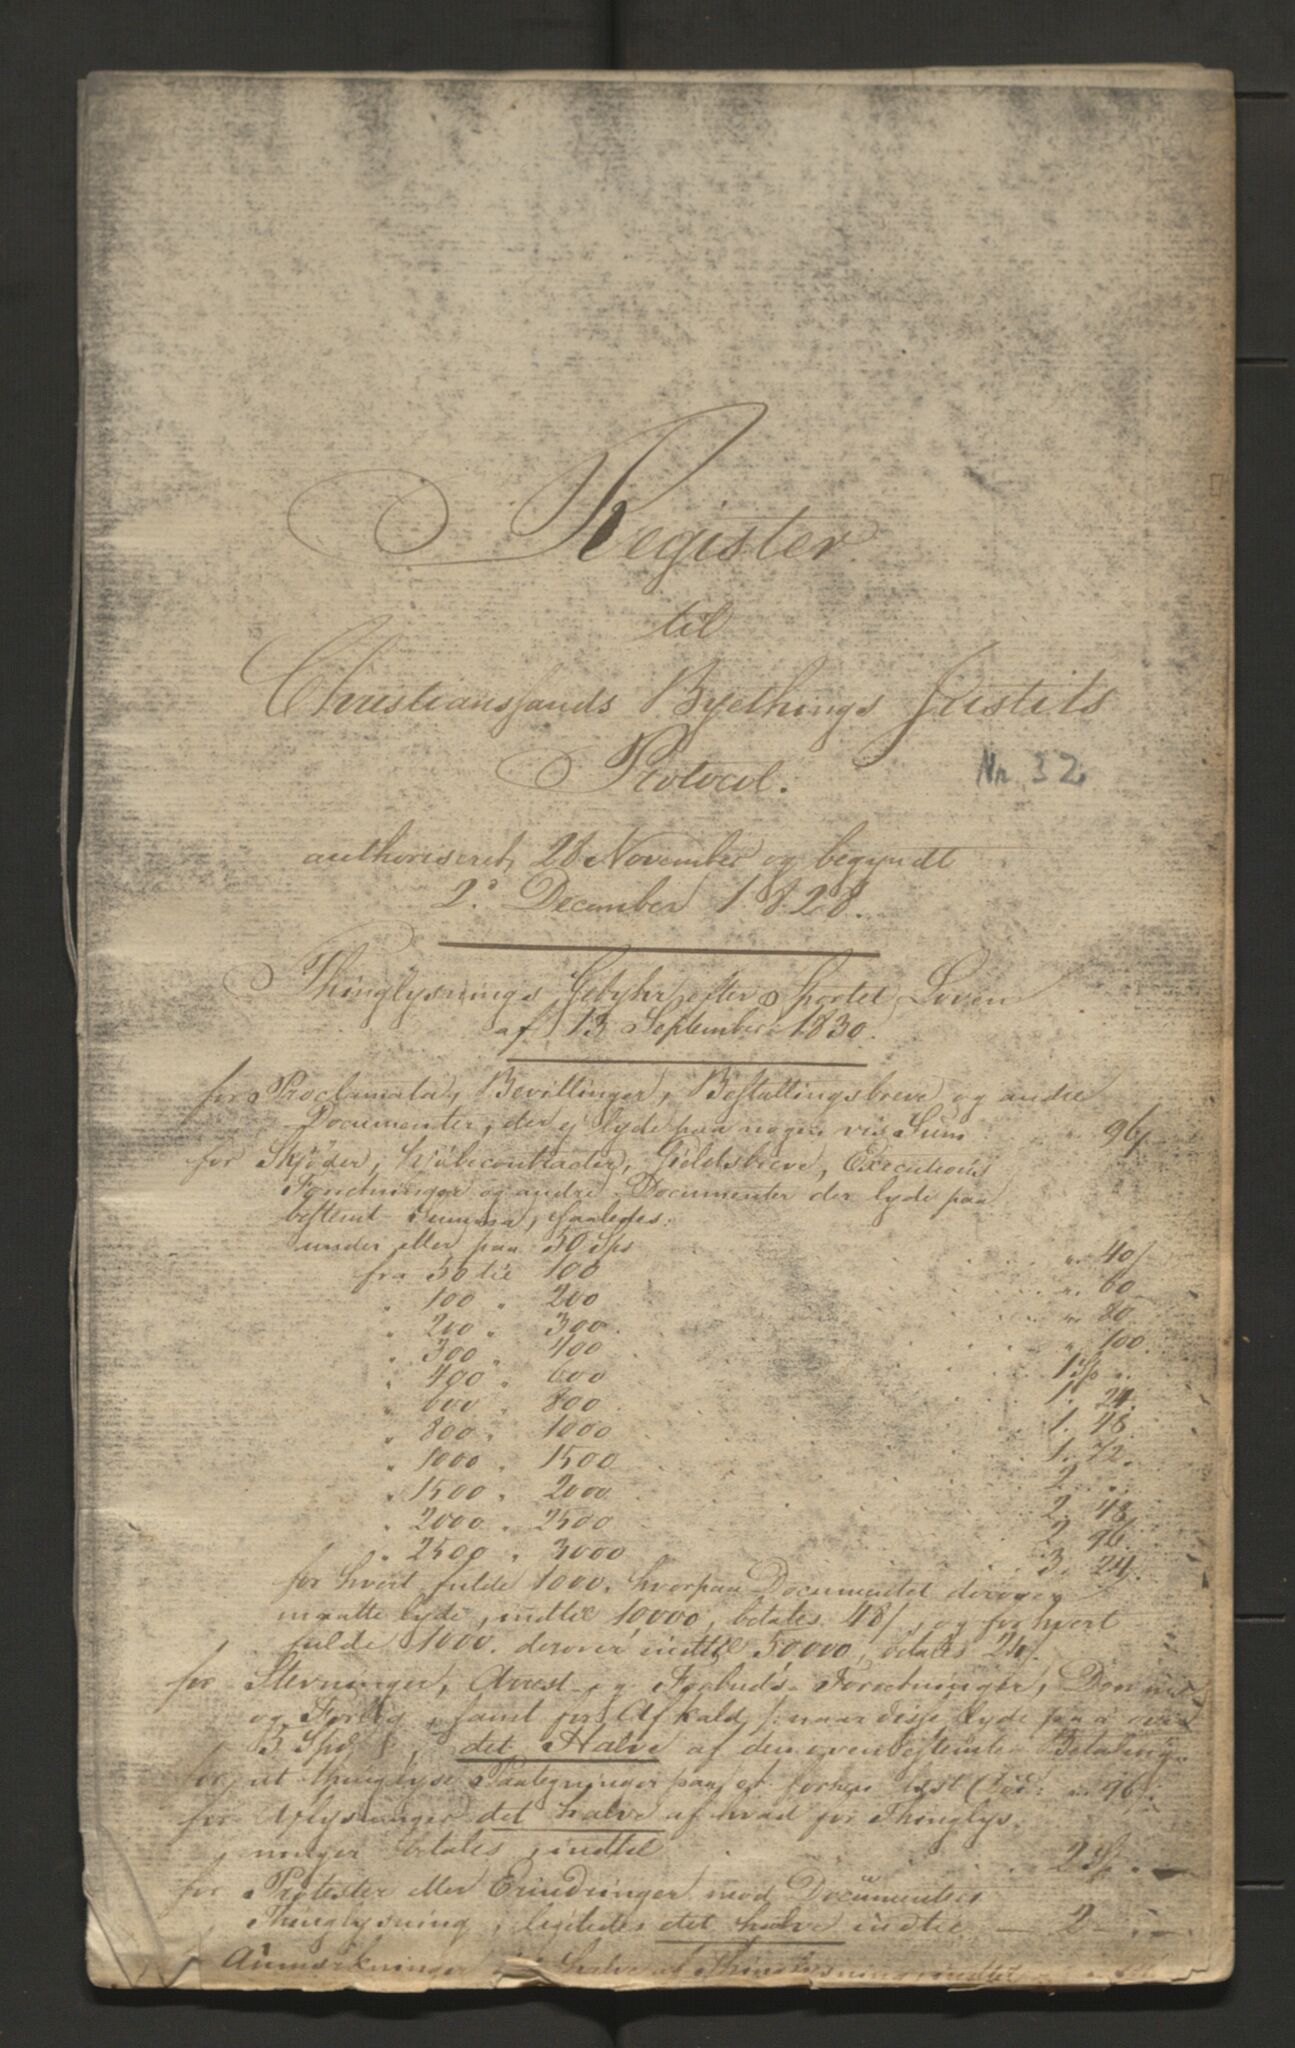 Register
til
Christianssands Byethings Justits
Protocol.
Nr. 32
authoriseret 28 November og begyndt
2. December 1828.
Thinglysnings Gebyhr efter Sportel Loven
af 13 September 1830.
for Proclamata, Bevillinger, Bestallingsbreve og andre
Documenter, der ej lyde paa nogen vis Sum " 96ſ
for Skjøder, Kiøbecontracter, Gieldsbreve, Executions
Forretninger og andre Documenter der lyde paa
bestemt Summa, saaledes:
under eller paa 50 Sps " 40ſ
fra 50 til 100 " 60
" 100 " 200 " 80
" 200 " 300 " 100.
" 300 " 400 1 Sp "
" 400 " 600 1. 24.
" 600 " 800 1. 48.
" 800 " 1000 1. 72.
" 1000 " 1500 2 "
" 1500 " 2000 2. 48.
" 2000 " 2500 2. 96.
" 2500 " 3000 3. 24.
for hvert fulde 1000, hvorpaa Documentet derover
maatte lyde, indtil 10000, betales 48ſ, og for hvert
fulde 1000 derover indtil 50,000, betales 24ſ.
for Stevninger, Arrest- og Forbuds-Forretninger, Domme
og Forlig, samt for Afkald /: naar disse lyde paa over
5 Spd :/, det Halve af den ovenbestemte Betaling.
for at thinglyse Paategninger paa et forhen lyst Doc: " 96ſ.
for Aflysninger det halve af hvad for Thinglys-
ninger betales, indtil 2 Sp "
for Protester eller Erindringer mod Documenters
Thinglysning, ligeledes det halve indtil 2 "
Anmærkninger det halve af Thinglysning, indtil